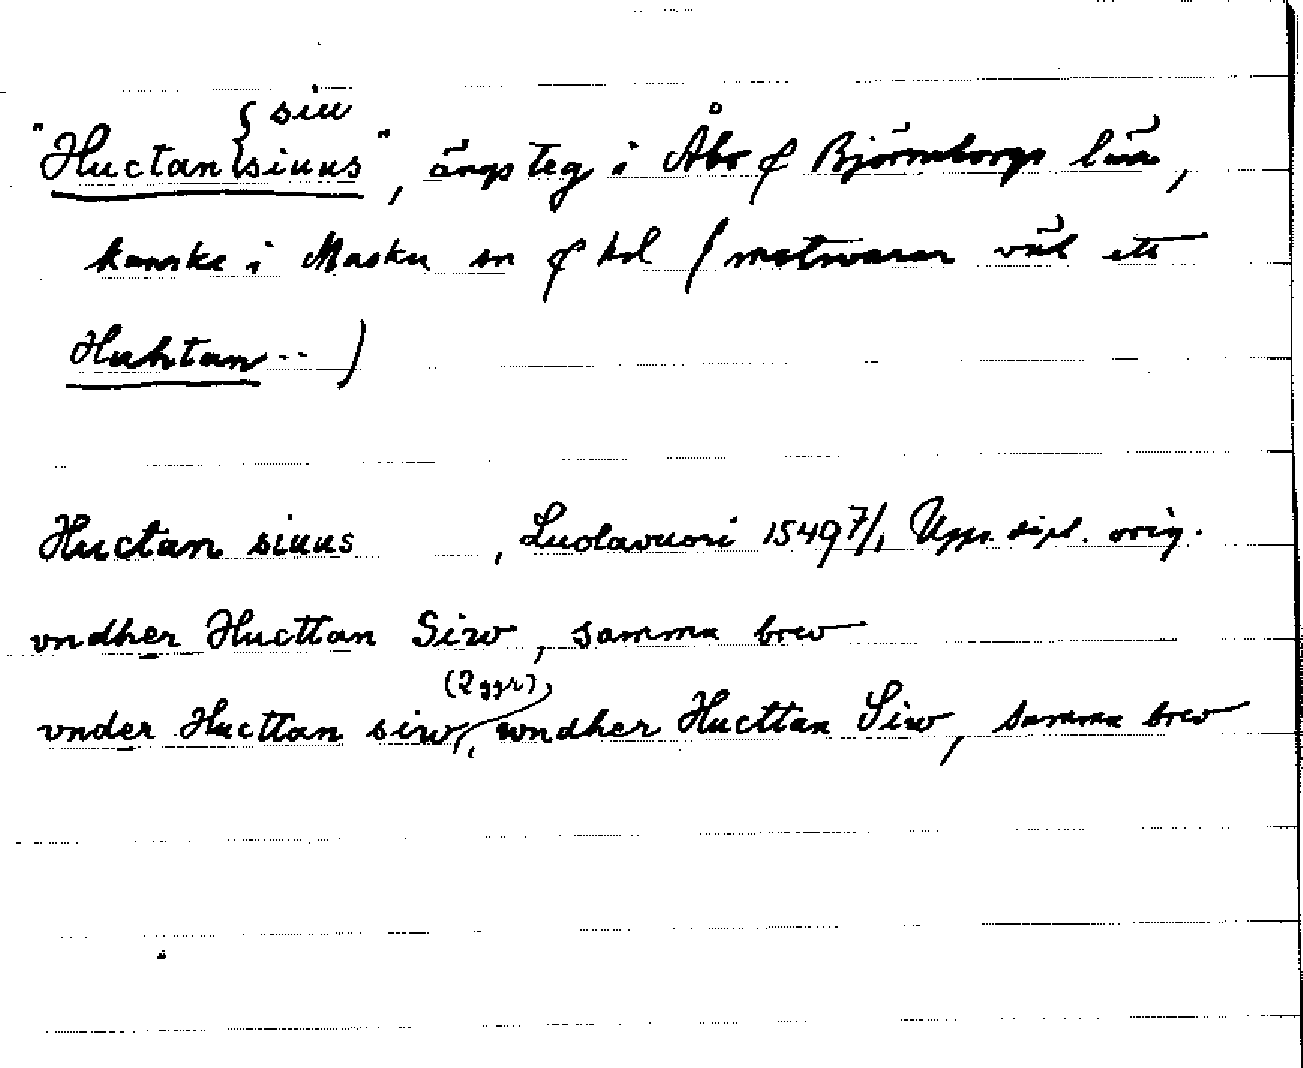 siu
"Huctan {siuus", ängsteg i Åbo o Björneborgs län,
kanske i Masku sn o hd (motsvarar väl ett
Huhtan ..)
Huctan siuus , Luolavuori 1549 7/, Upps. dipl. orig.
vndher Hucttan Siw, samma brev
(2 ggr)
vnder Hucttan siw, wndher Hucttan Siw, samma brev